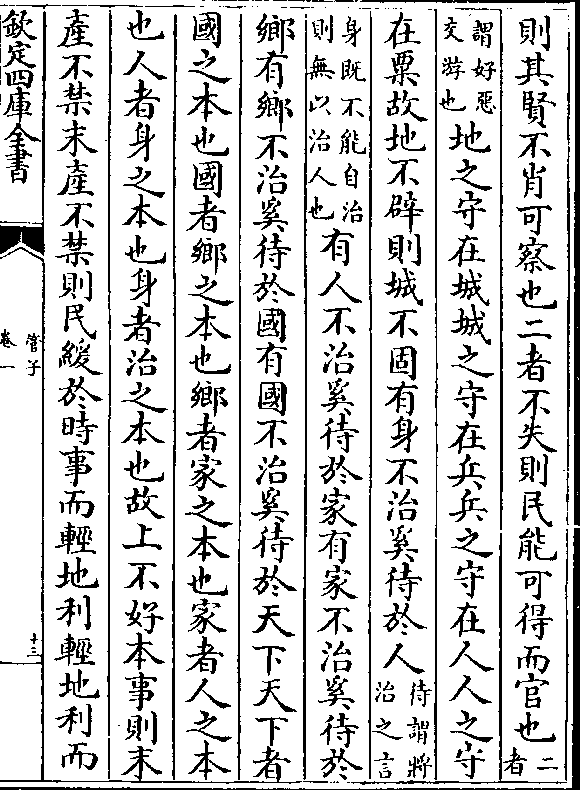 則其賢不肖可察也二者不失則民能可得而官也二者
謂好惡交游也地之守在城城之守在兵兵之守在人人之守
在粟故地不辟則城不固有身不治奚待於人待謂將治之言
身既不能自治則無以治人也有人不治奚待於家有家不治奚待於
鄉有鄉不治奚待於國有國不治奚待於天下天下者
國之本也國者鄉之本也鄉者家之本也家者人之本
也人者身之本也身者治之本也故上不好本事則末
產不禁末產不禁則民緩於時事而輕地利輕地利而
欽定四庫全書
管子
卷一
十三